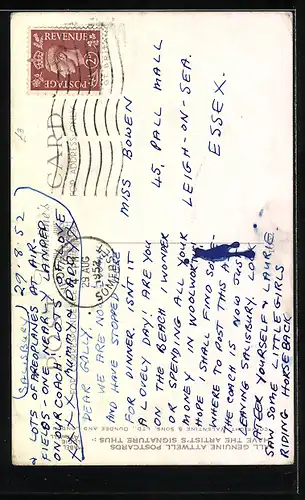 POSTAGE REVENUE
2D
CARD
SALISBURY 29.8.52
DEAR GALLY.
WE ARE NOW
AND HAVE STOPPED HERE
FOR DINNER. ISN'T IT
A LOVELY DAY! ARE YOU
ON THE BEACH I WONDER
OR SPENDING ALL YOUR
MONEY IN WOOLWORTHS
HOPE I SHALL FIND SOME-
WHERE TO POST THIS AS
THE COACH IS NOW JUST
LEAVING SALISBURY. LOOK
AFTER YOURSELF & LAURIE.
SAW SOME LITTLE GIRLS
RIDING HORSEBACK
& LOTS OF AREOPLANES AT AIR-
FIELDS - ONE NEARLY
IN OUR COACH. LOTS OF LOVE
MUMMY & DADDY
29 AUG
1952
SOMERSET
MISS BOWEN
45, PALL MALL
LEIGH-ON-SEA.
ESSEX.
ALL GENUINE ATTWELL POSTCARDS
HAVE THE ARTIST'S SIGNATURE THUS :-
VALENTINE & SONS, LTD., DUNDEE AND